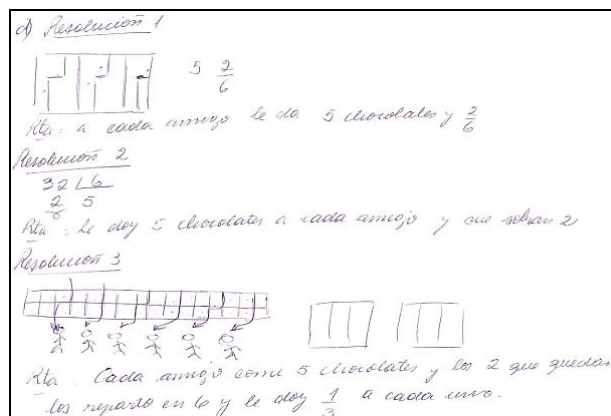 d) Resolución 1
5 2/6
Rta: a cada amigo le da 5 chocolates y 2/6
Resolución 2
32 6
2 5
Rta: le doy 5 chocolates a cada amigo y me sobran 2
Resolución 3
Rta: Cada amigo come 5 chocolates y los 2 que quedan
los reparto en 6 y le doy 1/3 a cada uno.